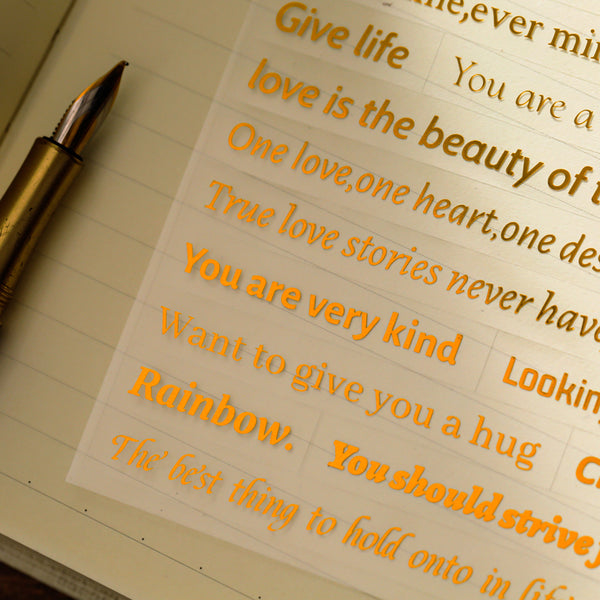 ever
Give life You are a
love is the beauty of
One love,one heart,one
True love stories never
You are very kind
Want to give you a hug
Rainbow. You should strive
The best thing to hold onto in